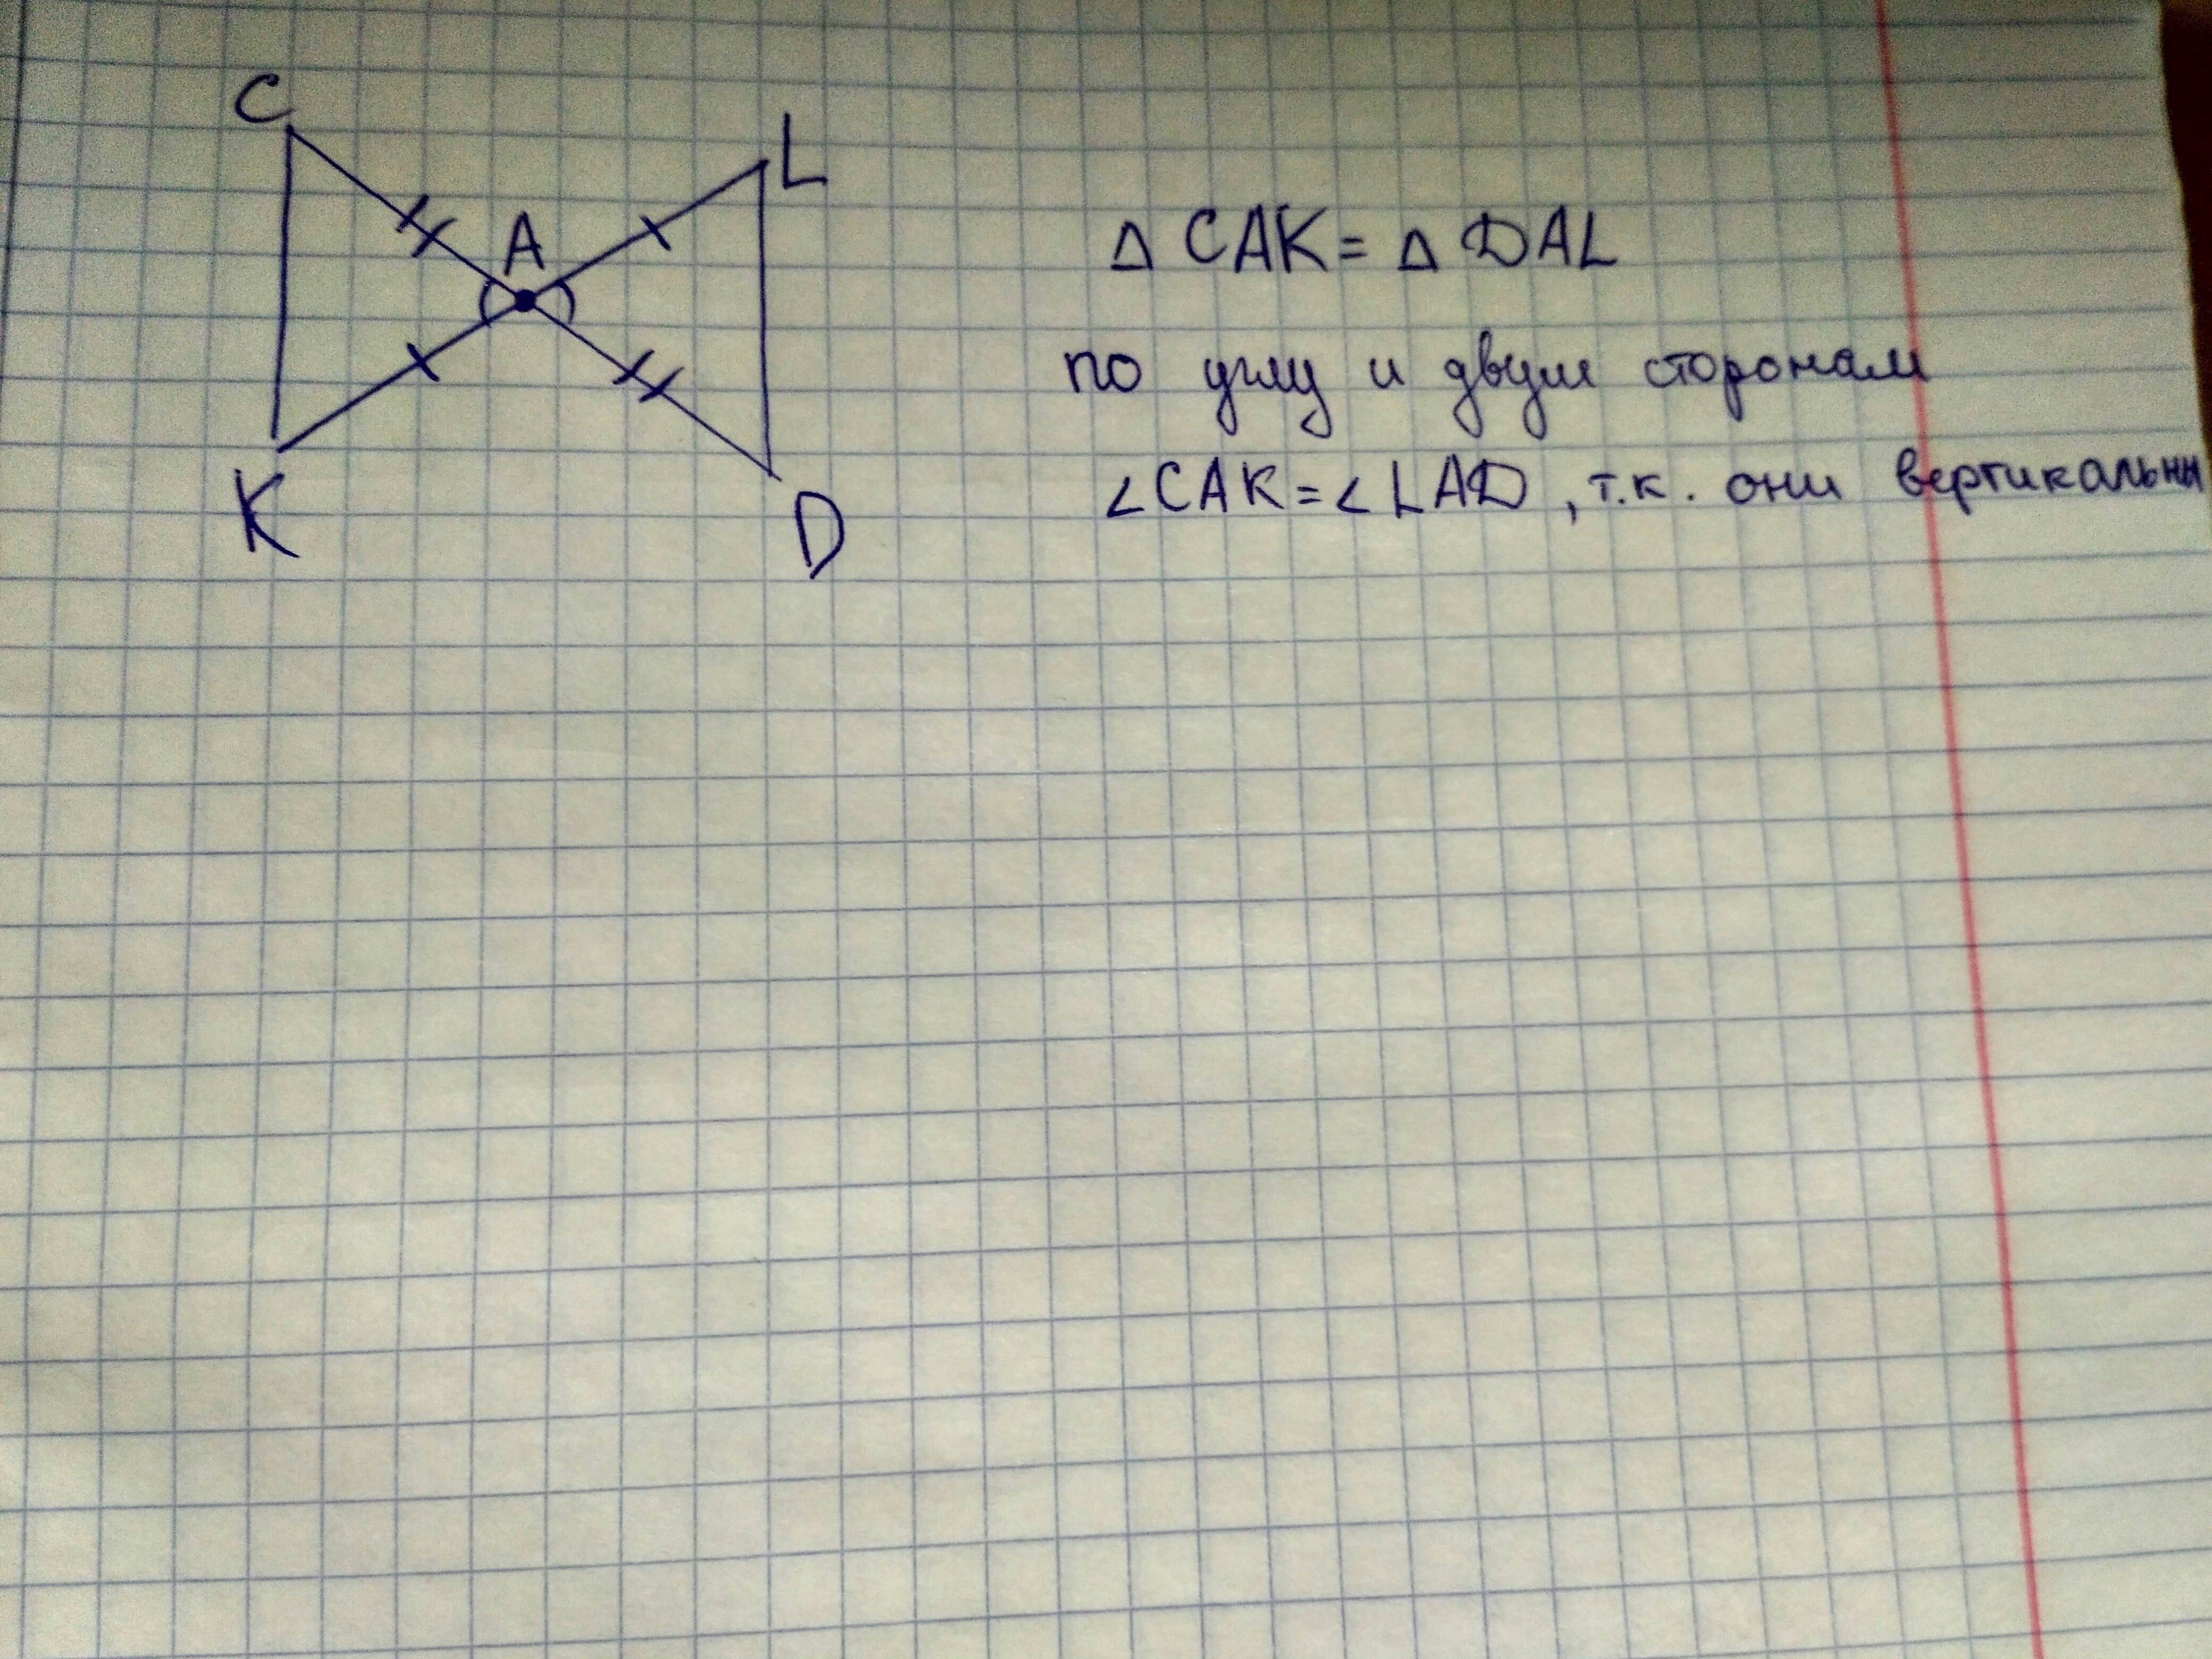 C
L
A
K
D
Δ CAK = Δ DAL
по углу и двум сторонам
∠CAK = ∠LAD, т.к. они вертикальны